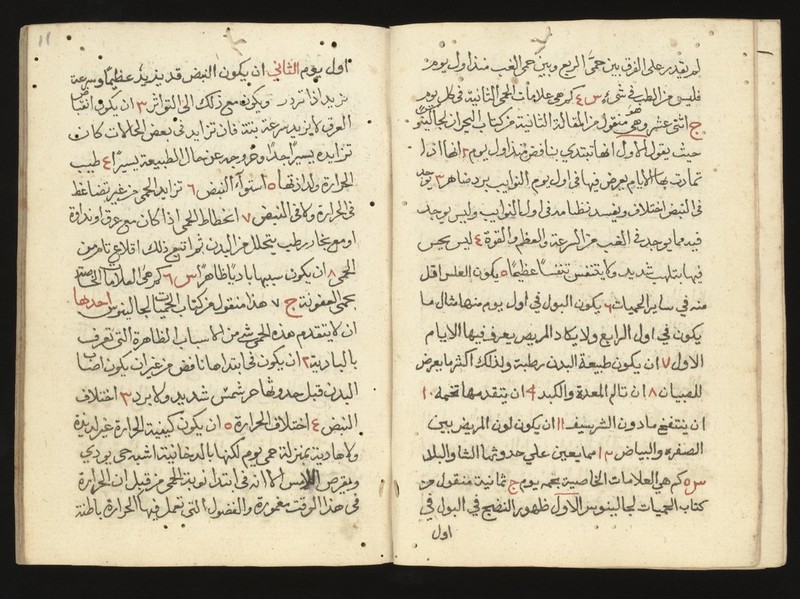 لم يقدر على الفرق بين حمى الربع وبين حمى الغب منذ اول يوم
فليس من الطب في شيء س ٤ كم هي علامات الحمى الثانية في كل يوم
ج اثنى عشر وهى منقول من المقالة الثانية من كتاب البحران لجالينوس
حيث يقول الاول انها تبتدي بنافض منذ اول يوم ٢ انها اذا
تمادت بها الايام يعرض فيها في اول يوم النوايب برد ظاهر ٣ يوجد
في النبض اختلاف ويفسد نظامه في اول النوايب وليس يوجد
فيه ما يوجد في الغب من السرعة والعظم والقوة ٤ ليس يحس
فيها بتلهب شديد ولا يتنفس تنفسا عظيما ٥ يكون العطس اقل
منه في ساير الحميات ٦ يكون البول في اول يوم منها مثال ما
يكون في اول الرابع ولا يكاد المريض يعرف فيها الايام
الاول ٧ ان يكون طبيعة البدن رطبة ولذلك اكثر ما يعرض
للصبيان ٨ ان تالم المعدة والكبد ٩ ان يتقدمها تخمه ١٠
ان ينتفخ ما دون الشرسيف ١١ ان يكون لون المريض بين
الصفرة والبياض ١٢ مما يعين على حدوثها الشتا والبلاد
س ٥ كم هي العلامات الخاصية بحمه يوم ج ثمانية منقول من
كتاب الحميات لجالينوس الاول ظهور النضج في البول في
اول
١١
اول يوم الثاني ان يكون النبض قد يزيد عظما وسرعة
العرق لا يزيد سرعة بتة فان تزايد في بعض الحالات كان
تزايده يسيرا جدا وخروجه عن حال الطبيعة يسيرا ٤ طيب
الحرارة ولذاذتها ٥ استواء النبض ٦ تزايد الحمى من غير تضاغط
في الحرارة ولا في النبض ٧ انحطاط الحمى اذا كان مع عرق او نداوة
او مع بخار رطب يتحلل من البدن ثم اتبع ذلك اقلاع تام من
الحمى ٨ ان يكون سببها باديا ظاهرا س ٦ كم هي العلامات
بحمى العفونة ج ٧ هذا منقول من كتاب الحميات لجالينوس احدها
ان لا يتقدم هذه الحمى شيء من الاسباب الظاهرة التي تعرف
بالبادية ٢ ان يكون في ابتداها نافض من غير ان يكون اصاب
البدن قبل حدوثها حر شمس شديد ولا برد ٣ اختلاف
النبض ٤ اختلاف الحرارة ٥ ان يكون كيفية الحرارة غير لذيذة
ولا هادية بمنزلة حمى يوم لكنها بالدخانية اشبه حتى يوذي
ويقرض اللامس الا انه في ابتدا نوبة الحمى من قبل ان الحرارة
في هذا الوقت مغمورة والفضول التي تعمل فيها الحرارة باطنة